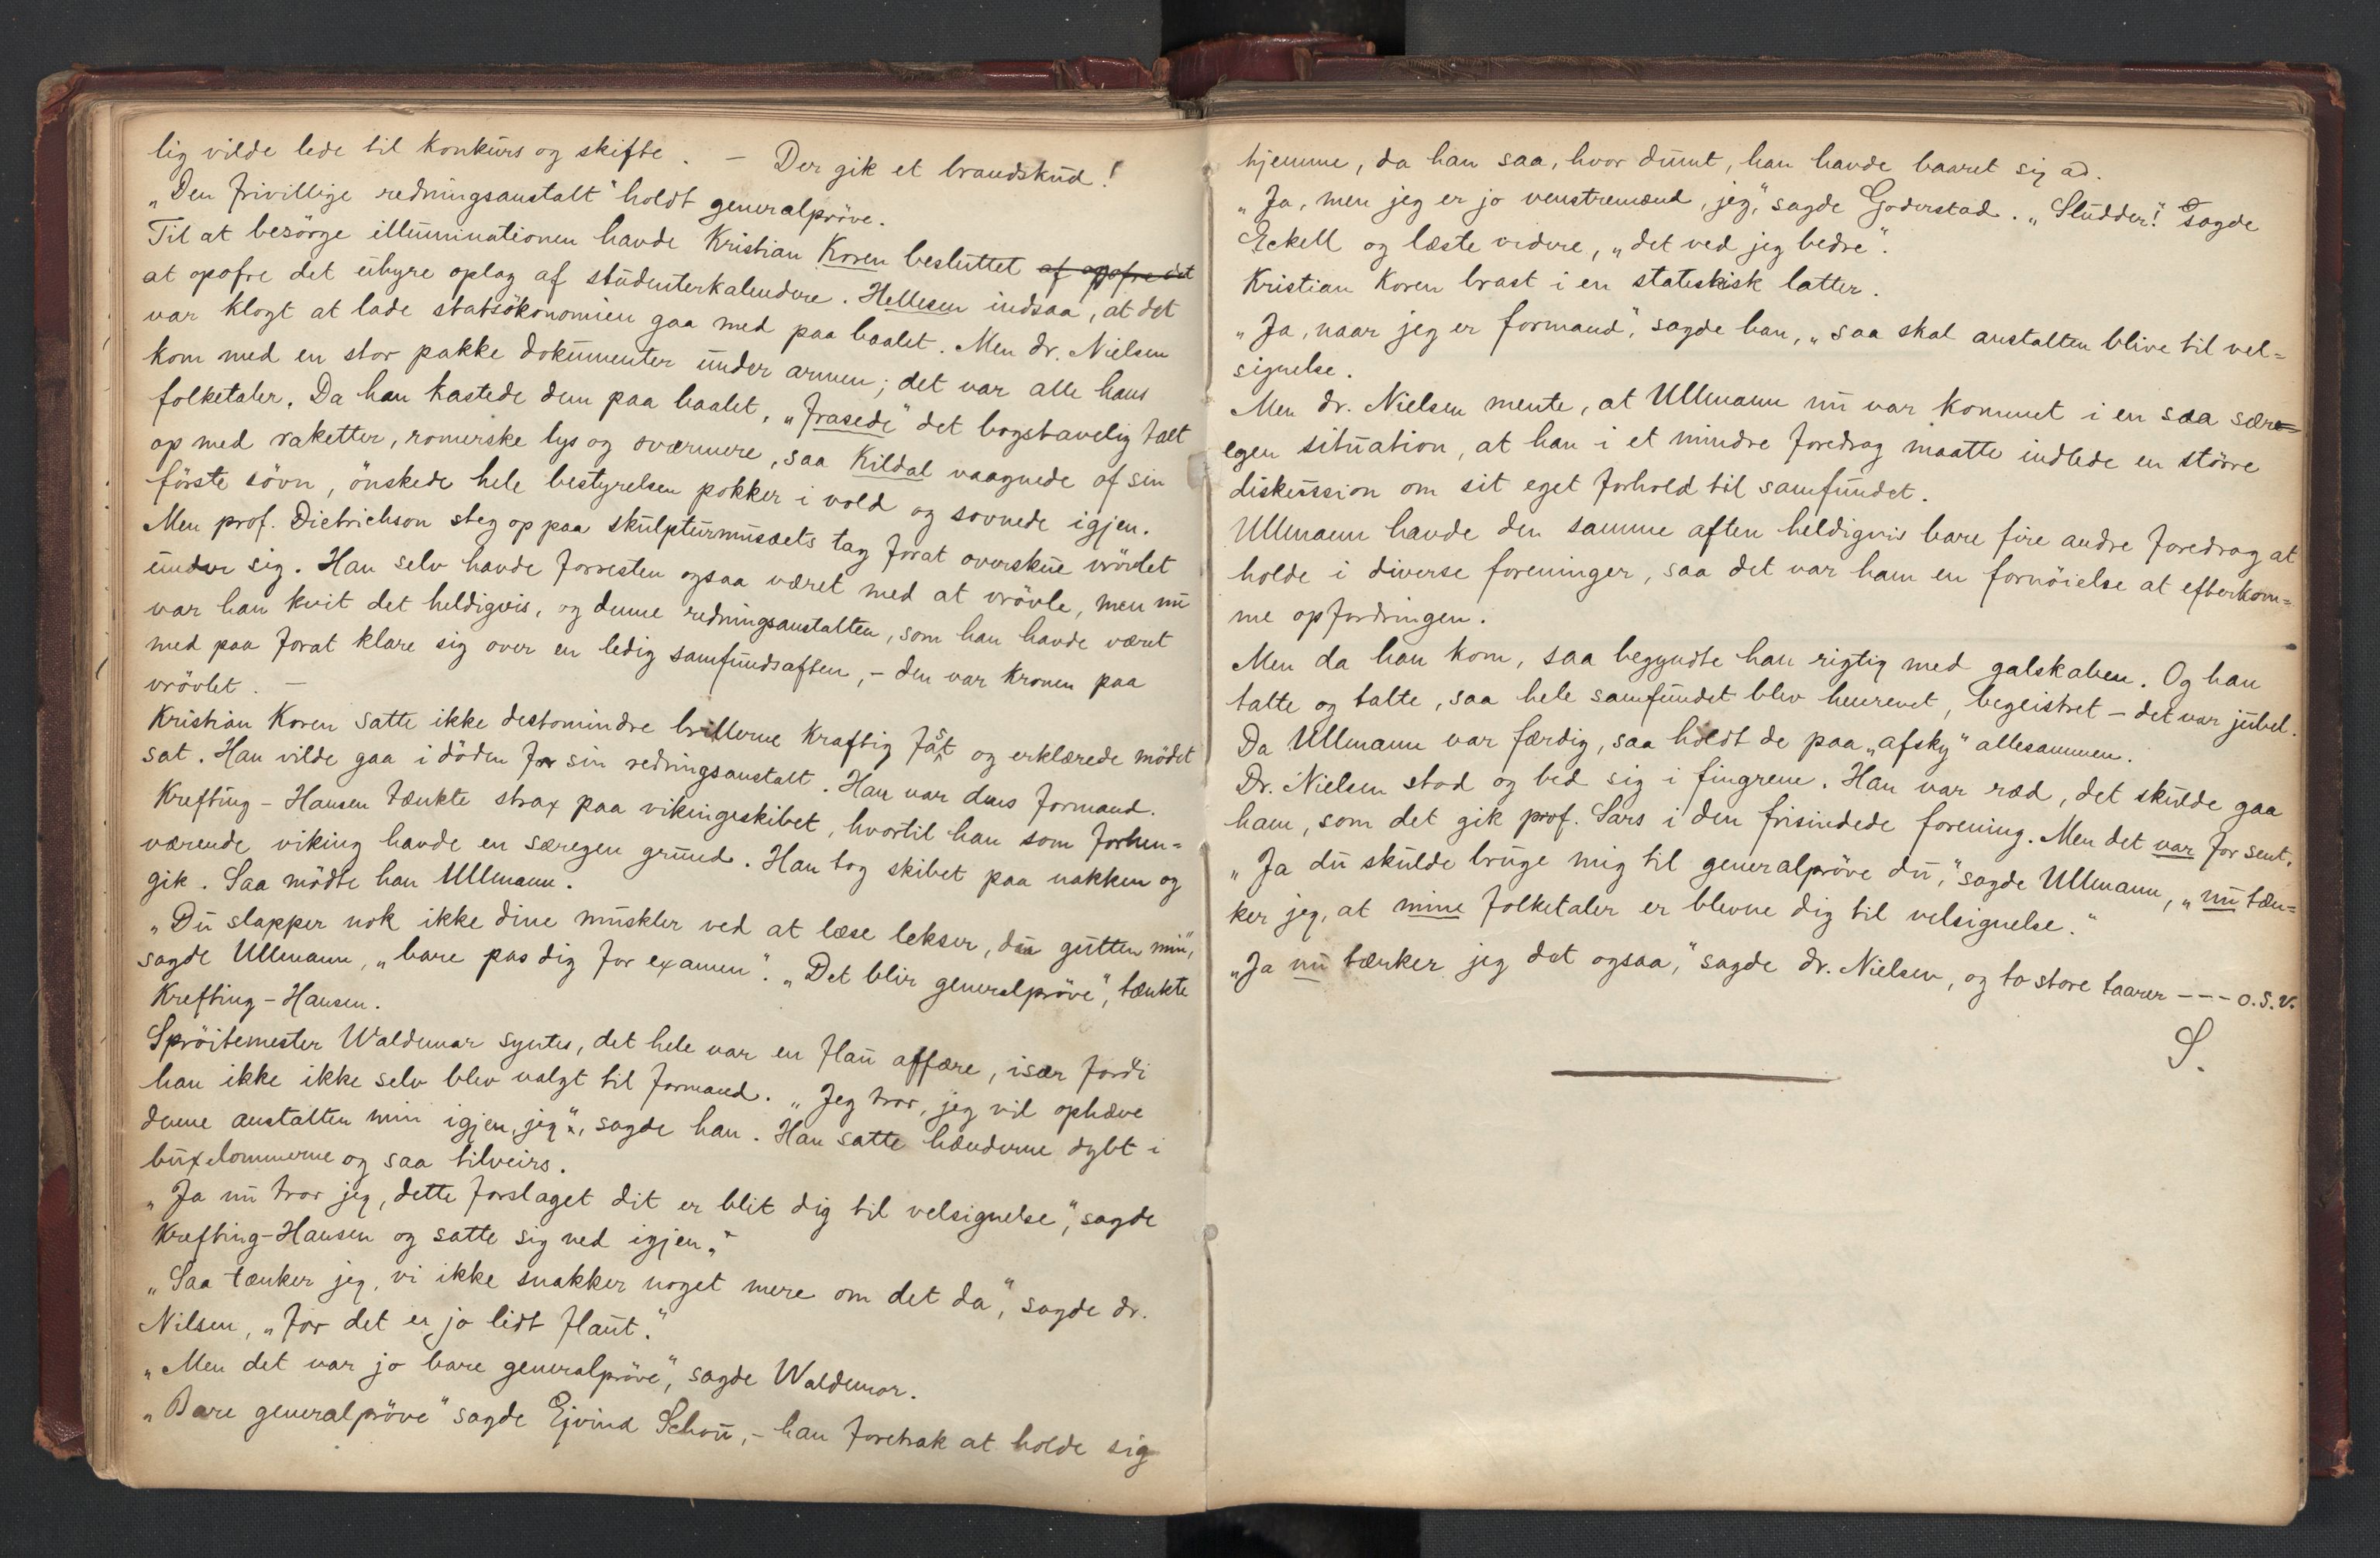 lig vilde lede til konkurs og skifte. – Der gik et brandskud!
„Den frivillige redningsanstalt“ holdt generalpröve.
Til at besörge illuminationen havde Kristian Koren besluttet af opofre det
at opofre det uhyre oplag af studenterkalendere. Hellesen indsaa, at det
var klogt at lade statsökonomien gaa med paa baalet. Men dr. Nielsen
kom med en stor pakke dokumenter under armen; det var alle hans
folketaler. Da han kastede dem paa baalet, „frasede“ det bogstavelig talt
op med raketter, romerske lys og sværmere, saa Kildal vaagnede af sin
förste sövn, önskede hele bestyrelsen pokker i vold og sovnede igjen.
Men prof. Dietrichson steg op paa skulpturmusæets tag forat overskue vrövlet
under sig. Han selv havde forresten ogsaa været med at vrövle, men nu
var han kvit det heldigvis, og denne redningsanstalten, som han havde været
med paa forat klare sig over en ledig samfundsaften, – den var kronen paa
vrövlet. –
Kristian Koren satte ikke destomindre brillerne kraftig fast og erklærede mödet
sat. Han vilde gaa i döden for sin redningsanstalt. Han var dens formand.
Krefting-Hansen tænkte strax paa vikingeskibet, hvortil han som forhen=
værende viking havde en særegen grund. Han tog skibet paa nakken og
gik. Saa mödte han Ullmann.
„Du slapper nok ikke dine muskler ved at læse lekser, du gutten min“,
sagde Ullmann, „bare pas dig for examen“. „Det blir generalpröve“, tænkte
Krefting-Hansen.
Spröitemester Waldemar syntes, det hele var en flau affære, især fordi
han ikke ikke selv blev valgt til formand. „Jeg tror, jeg vil ophæve
denne anstalten min igjen, jeg“, sagde han. Han satte hænderne dybt i
buxelommerne og saa tilveirs.
„Ja nu tror jeg, dette forslaget dit er blit dig til velsignelse“, sagde
Krefting-Hansen og satte sig ned igjen.“
„Saa tænker jeg, vi ikke snakker noget mere om det da“, sagde dr.
Nilsen, „for det er jo lidt flaut.“
„Men det var jo bare generalpröve“, sagde Waldemar.
„Bare generalpröve“ sagde Ejvind Schou, – han foretrak at holde sig
hjemme, da han saa, hvor dumt, han havde baaret sig ad.
„Ja, men jeg er jo venstremand, jeg“, sagde Goderstad. „Sludder!“ sagde
Eckell og læste videre, „det ved jeg bedre“.
Kristian Koren brast i en statistisk latter.
„Ja, naar jeg er formand“, sagde han, „saa skal anstalten blive til vel=
signelse.
Men dr. Nielsen mente, at Ullmann nu var kommet i en saa sær=
egen situation, at han i et mindre foredrag maatte indlede en större
diskussion om sit eget forhold til samfundet.
Ullmann havde den samme aften heldigvis bare fire andre foredrag at
holde i diverse foreninger, saa det var ham en fornöielse at efterkom=
me opfordringen.
Men da han kom, saa begyndte han rigtig med galskaben. Og han
talte og talte, saa hele samfundet blev henrevet, begeistret – det var jubel.
Da Ullmann var færdig, saa holdt de paa „afsky“ allesammen.
Dr. Nielsen stod og bed sig i fingrene. Han var ræd, det skulde gaa
ham, som det gik prof. Sars i den frisindede forening. Men det var for sent.
„Ja du skulde bruge mig til generalpröve du,“ sagde Ullmann, „nu tæn=
ker jeg, at mine folketaler er blevne dig til velsignelse.“
„Ja nu tænker jeg det ogsaa,“ sagde dr. Nielsen, og to store taarer – – – o.s.v.
S.